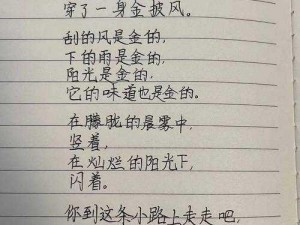 穿了一身金披风。
刮的风是金的，
下的雨是金的，
阳光是金的，
它的味道也是金的。
在朦胧的晨雾中，
竖着，
在灿烂的阳光下，
闪着。
你到这条小路上走走吧，